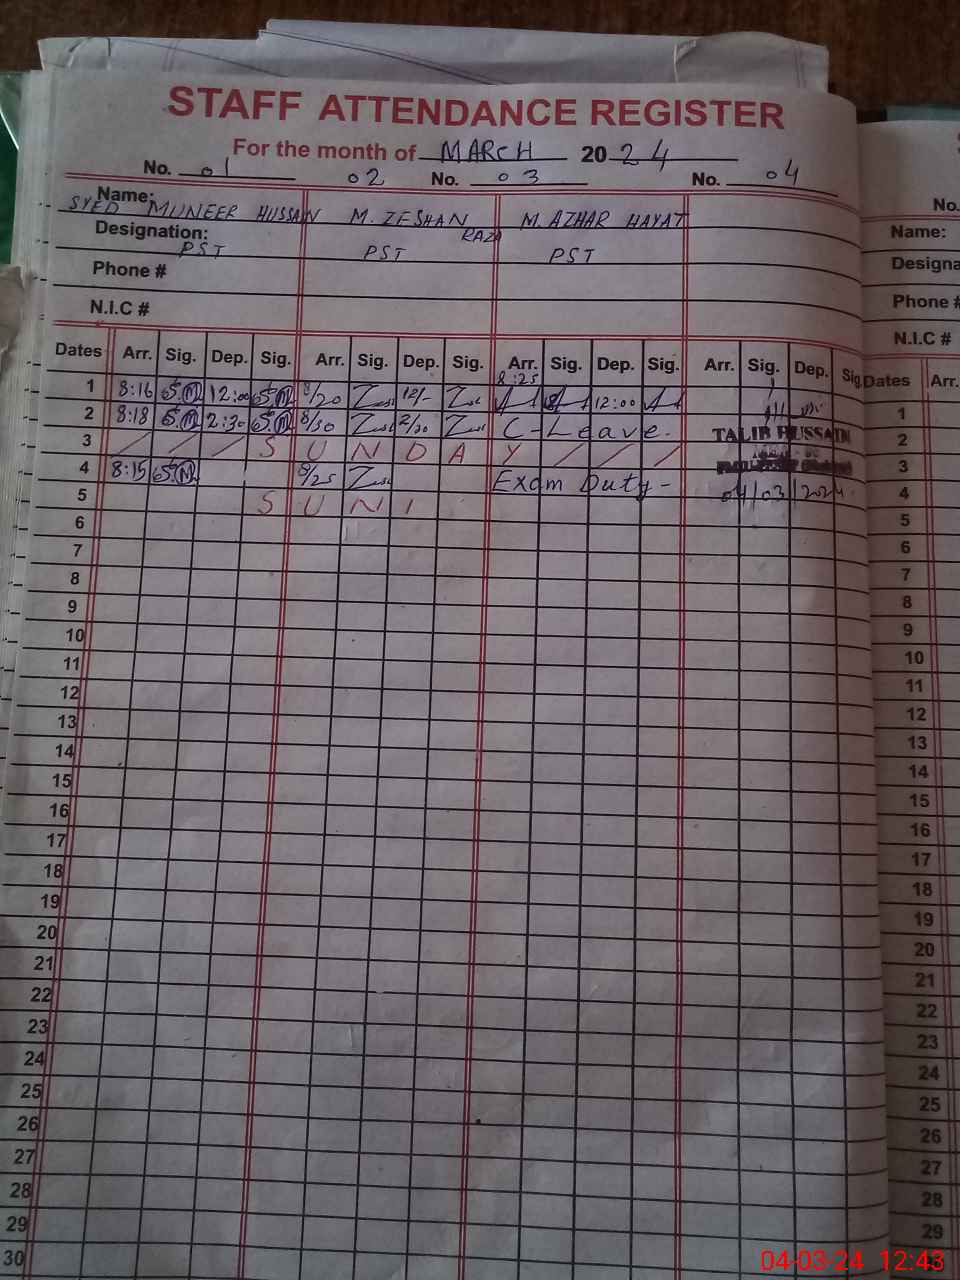 STAFF ATTENDANCE REGISTER
For the month of MARCH 2024
No. 01 02 No. 03 No. 04
Name: SYED MUNEER HUSSAIN M. ZESHAN RAZA M. AZHAR HAYAT
Designation: PST PST PST
Phone #
N.I.C #
Dates Arr. Sig. Dep. Sig. Arr. Sig. Dep. Sig. Arr. Sig. Dep. Sig. Arr. Sig. Dep. Sig.
1 8:16 S.M 12:00 S.M 8/20 12/- 8:25 12:00
2 8:18 S.M 2:30 S.M 8/30 2/30 C-Leave.
3 / / / S U N D A Y / / /
4 8:15 S.M 8/25 Exam Duty-
5 S U N
6
7
8
9
10
11
12
13
14
15
16
17
18
19
20
21
22
23
24
25
26
27
28
29
30
TALIB HUSSAIN
04/03/2024
No.
Name:
Designa
Phone #
N.I.C #
Dates Arr.
1
2
3
4
5
6
7
8
9
10
11
12
13
14
15
16
17
18
19
20
21
22
23
24
25
26
27
28
29
04-03-24 12:43